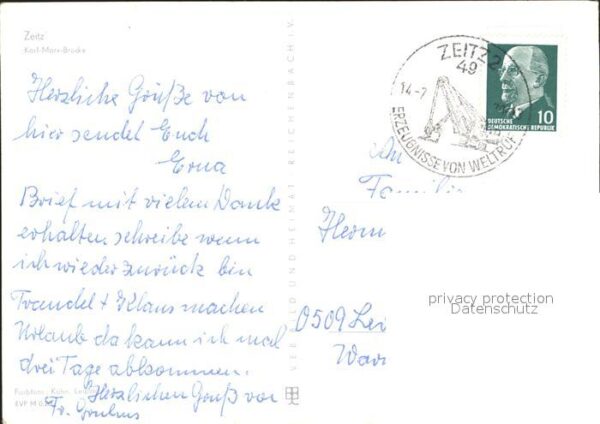 Zeitz
Karl-Marx-Brücke
Herzliche Grüße von
hier sendet Euch
Erna
Brief mit vielem Dank
erhalten, schreibe wenn
ich wieder zurück bin
Traudel + Klaus machen
Urlaub da kann ich mal
drei Tage abkommen.
Herzlichen Gruß von
Fr.
VEB BILD UND HEIMAT REICHENBACH i. V.
ZEITZ 2
49
14.-7
ERZEUGNISSE VON WELTRUF
10
DEUTSCHE
DEMOKRATISCHE REPUBLIK
An
Familie
Herrn
privacy protection
Datenschutz
0509 Lei